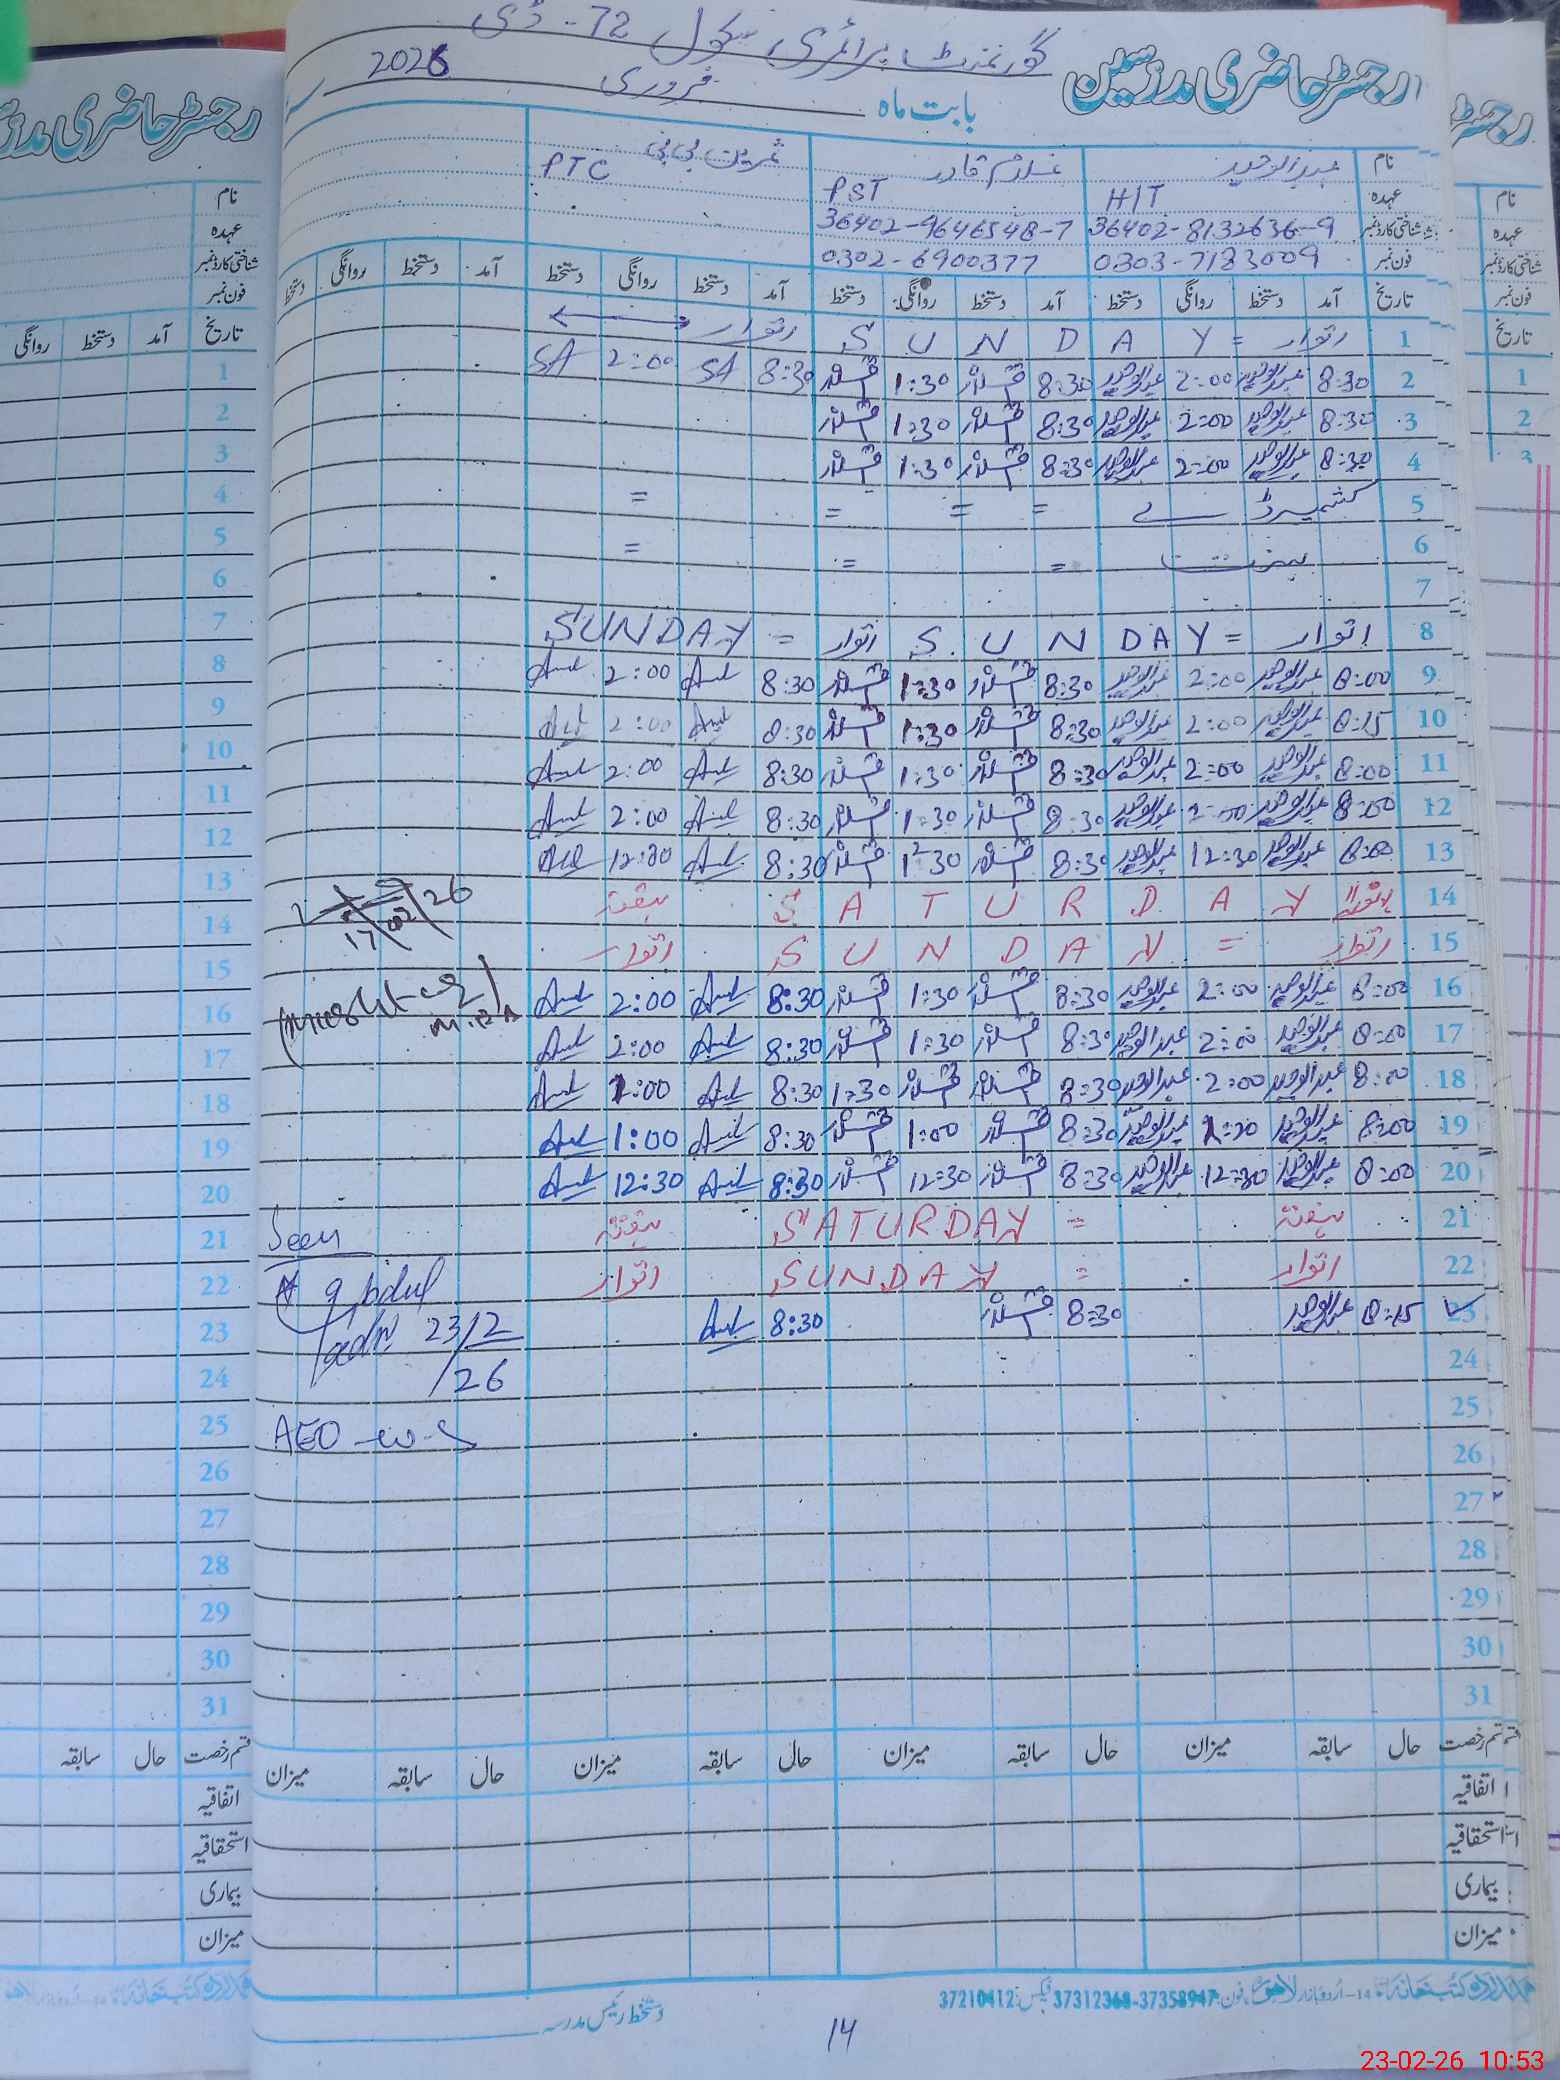 گورنمنٹ پرائمری سکول 72-ڈی
رجسٹر حاضری مدرسین
بابت ماہ فروری 2026
نام عبدالوحید غلام قادر ثمرین بی بی
عہدہ H/T PST PTC
شناختی کارڈ نمبر 36402-8132636-9 36402-9646548-7
فون نمبر 0303-7183009 0302-6900377
تاریخ آمد دستخط روانگی دستخط آمد دستخط روانگی دستخط آمد دستخط روانگی دستخط آمد دستخط روانگی دستخط
1 اتوار = SUNDAY اتوار
2 8:30 عبدالوحید 2:00 عبدالوحید 8:30 1:30 8:30 SA 2:00 SA
3 8:30 عبدالوحید 2:00 عبدالوحید 8:30 1:30
4 8:30 عبدالوحید 2:00 عبدالوحید 8:30 1:30
5 کشمیر ڈے = = = =
6 بسنت = = =
7
8 اتوار = SUNDAY اتوار = SUNDAY
9 8:00 عبدالوحید 2:00 عبدالوحید 8:30 1:30 8:30 2:00
10 8:15 عبدالوحید 2:00 عبدالوحید 8:30 1:30 8:30 2:00
11 8:00 عبدالوحید 2:00 عبدالوحید 8:30 1:30 8:30 2:00
12 8:00 عبدالوحید 2:00 عبدالوحید 8:30 1:30 8:30 2:00
13 8:00 عبدالوحید 12:30 عبدالوحید 8:30 12:30 8:30 12:30
14 ہفتہ SATURDAY ہفتہ
15 اتوار = SUNDAY اتوار
16 8:00 عبدالوحید 2:00 عبدالوحید 8:30 1:30 8:30 2:00
17 8:00 عبدالوحید 2:00 عبدالوحید 8:30 1:30 8:30 2:00
18 8:00 عبدالوحید 2:00 عبدالوحید 8:30 1:30 8:30 1:00
19 8:00 عبدالوحید عبدالوحید 8:30 1:00 8:30 1:00
20 8:00 عبدالوحید 12:30 عبدالوحید 8:30 12:30 8:30 12:30
21 ہفتہ = SATURDAY ہفتہ
22 اتوار = SUNDAY اتوار
23 8:15 عبدالوحید 8:30 8:30
24
25
26
27
28
29
30
31
17/02/26
Seen
23/2
/26
AEO
قسم رخصت حال سابقہ میزان حال سابقہ میزان حال سابقہ میزان حال سابقہ میزان
اتفاقیہ
استحقاقیہ
بیماری
میزان
اردو بازار لاہور فون: 37358947-37312368 فیکس: 37210412
دستخط رئیس مدرسہ
14
23-02-26 10:53
رجسٹر حاضری
نام
عہدہ
شناختی کارڈ نمبر
فون نمبر
تاریخ آمد دستخط روانگی
1
2
3
4
5
6
7
8
9
10
11
12
13
14
15
16
17
18
19
20
21
22
23
24
25
26
27
28
29
30
31
قسم رخصت حال سابقہ
اتفاقیہ
استحقاقیہ
بیماری
میزان
رجسٹر
نام
عہدہ
شناختی کارڈ نمبر
فون نمبر
تاریخ
1
2
3